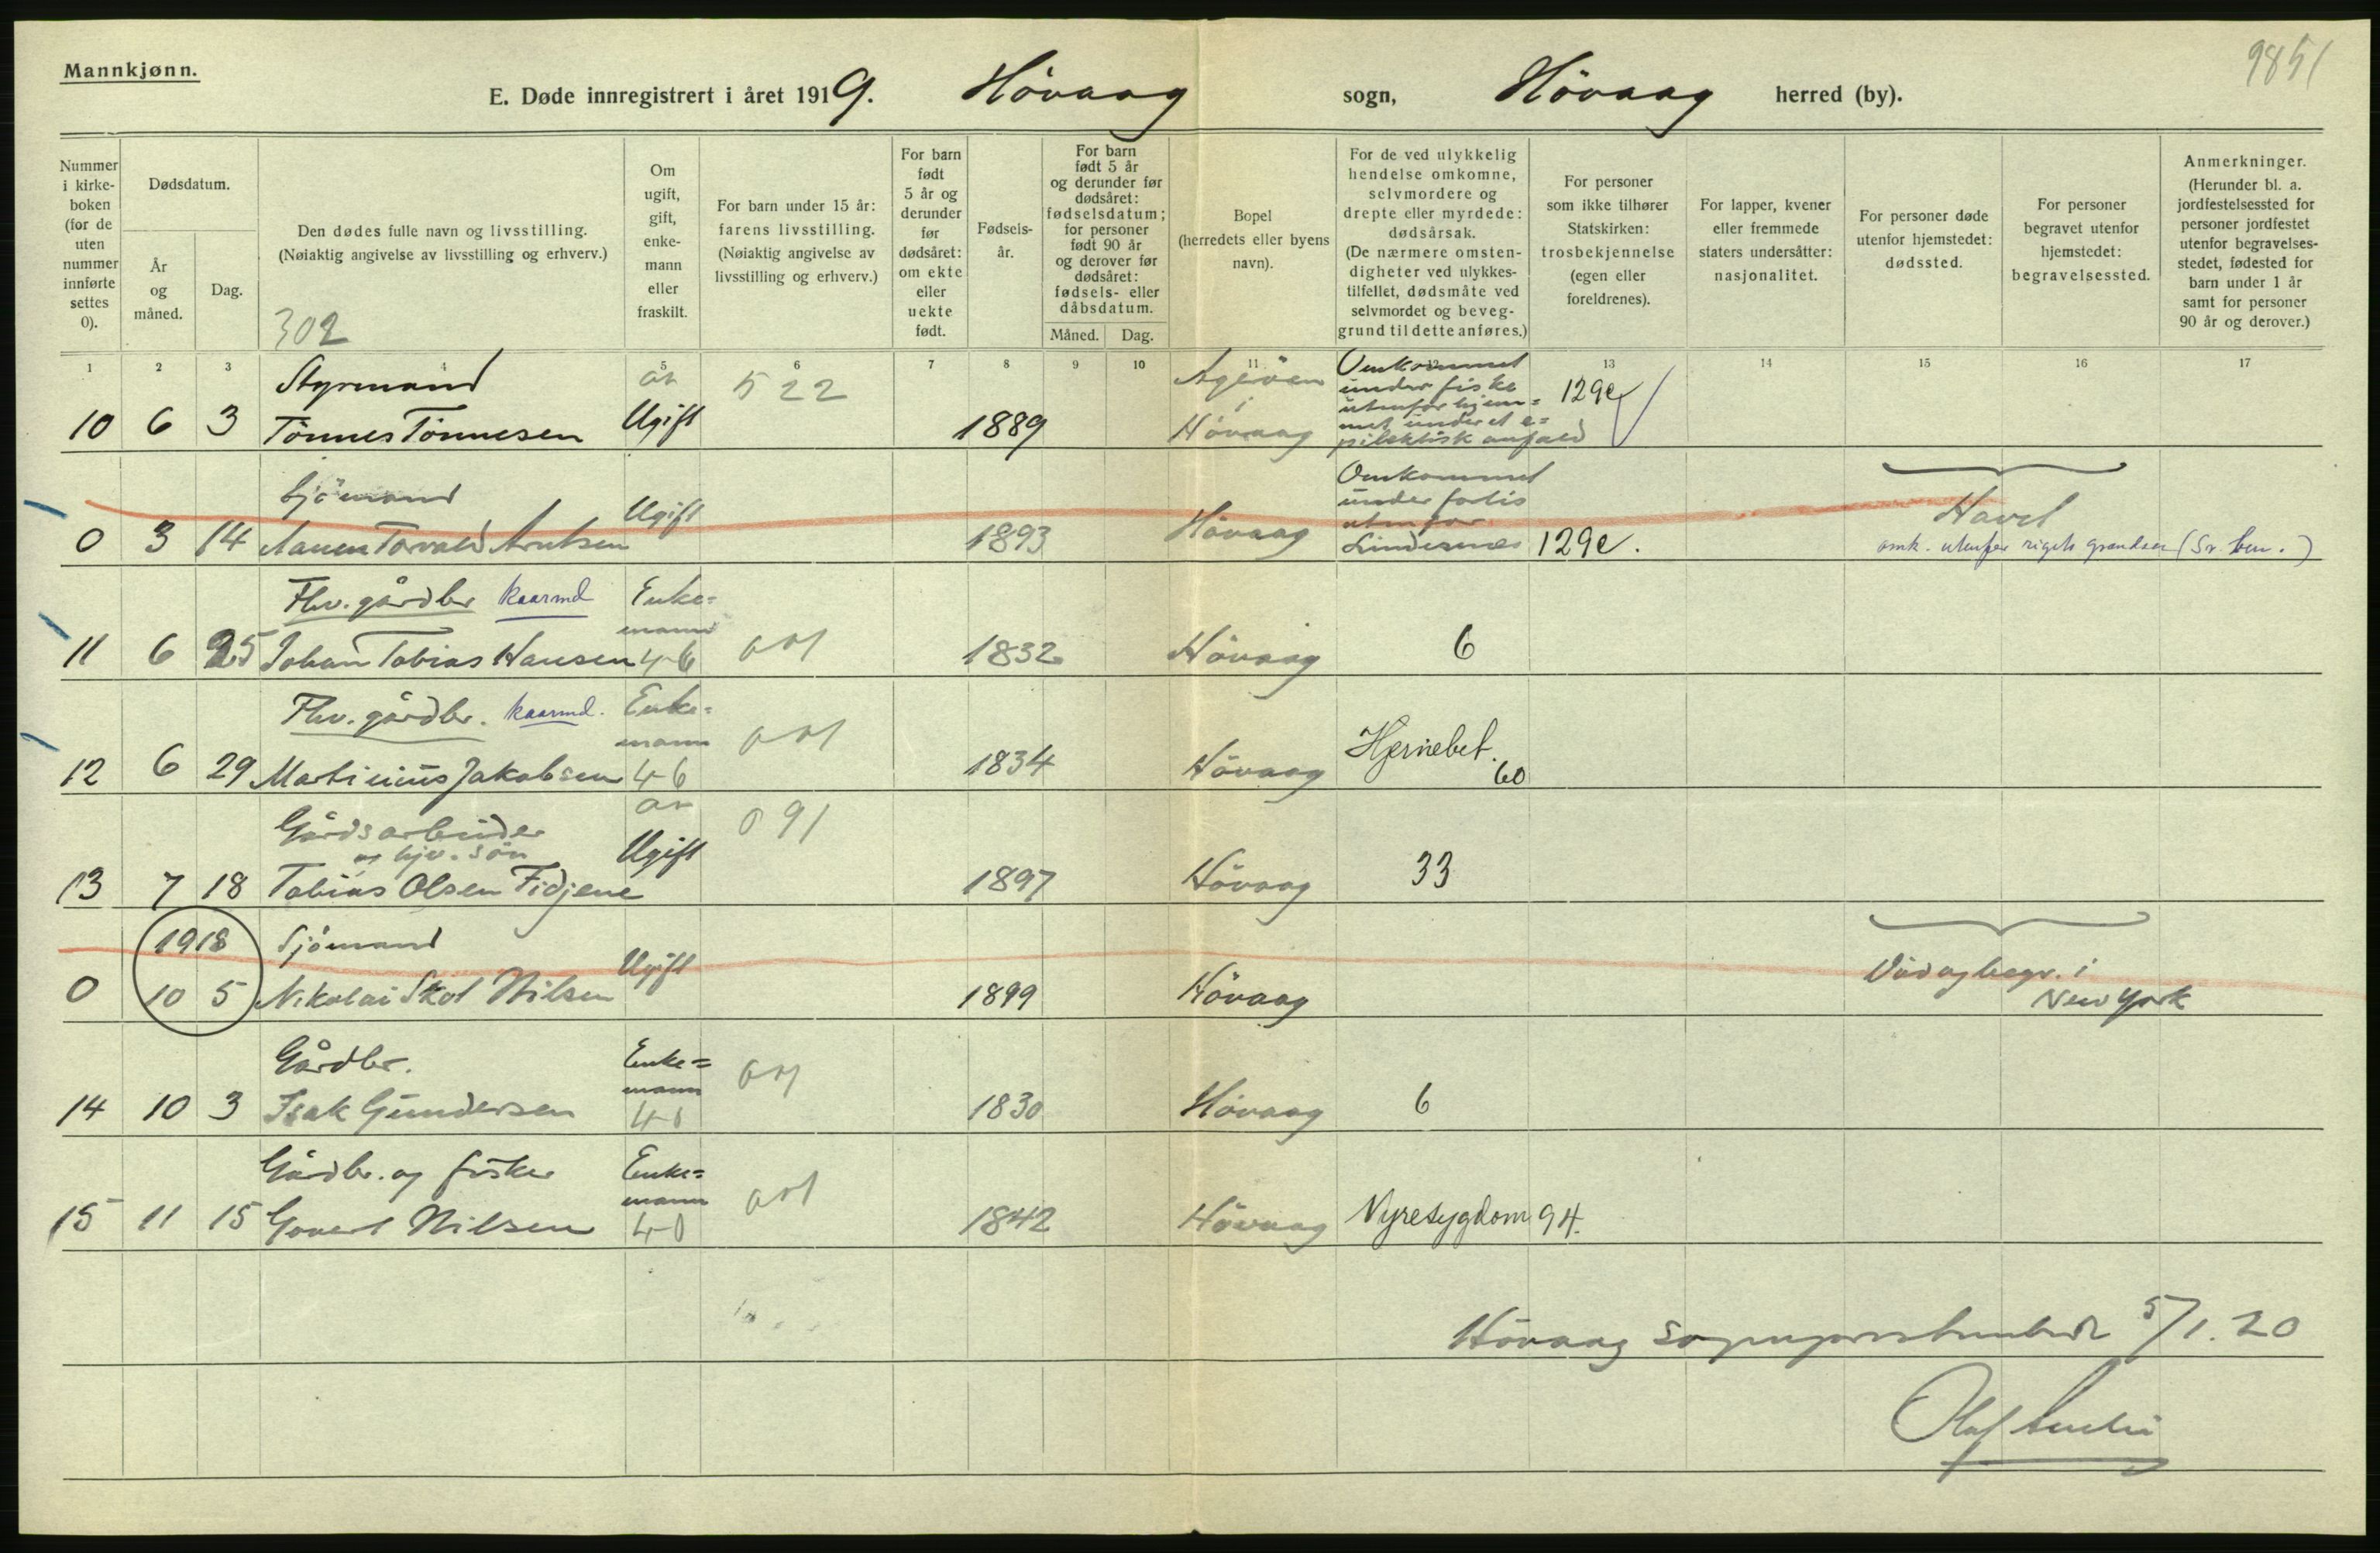 Mannkjønn.
9851
E. Døde innregistrert i året 1919. Hövaag sogn, Hövaag herred (by).
Nummer i kirke- boken (for de uten nummer innførte settes 0).
Dødsdatum.
År og måned.
Dag.
Den dødes fulle navn og livsstilling.
(Nøiaktig angivelse av livsstilling og erhverv.)
302
Om ugift, gift, enke- mann eller fraskilt.
For barn under 15 år: farens livsstilling. (Nøiaktig angivelse av livsstilling og erhverv.)
For barn født 5 år og derunder før dødsåret: om ekte eller uekte født.
Fødsels- år.
For barn født 5 år og derunder før dødsåret: fødselsdatum; for personer født 90 år og derover før dødsåret: fødsels- eller dåbsdatum.
Måned. Dag.
Bopel (herredets eller byens navn).
For de ved ulykkelig hendelse omkomne, selvmordere og drepte eller myrdede: dødsårsak. (De nærmere omsten- digheter ved ulykkes- tilfellet, dødsmåte ved selvmordet og beveg- grund til dette anføres.)
For personer som ikke tilhører Statskirken: trosbekjennelse (egen eller foreldrenes).
For lapper, kvener eller fremmede staters undersåtter: nasjonalitet.
For personer døde utenfor hjemstedet: dødssted.
For personer begravet utenfor hjemstedet: begravelsessted.
Anmerkninger. (Herunder bl. a. jordfestelsessted for personer jordfestet utenfor begravelses- stedet, fødested for barn under 1 år samt for personer 90 år og derover.)
1 2 3 4 5 6 7 8 9 10 11 12 13 14 15 16 17
Styrmand 522 Omkommet
under fiske 129e
utenfor hjem=
10 6 3 Tönnes Tönnesen Ugift 1889 Hövaag met under et e=
pilektisk anfald
Sjömand Ugift Omkommet
under forlis Havet
utenfor
0 3 14 Torvald Arntsen 1893 Hövaag Lindesnes 129e. omk. utenfor rigets grændser
Fhv. gårdbr kaarmd Enke=
mann
11 6 25 Johan Tobias Hansen 46 001 1832 Hövaag 6
Fhv. gårdbr. kaarmd. Enke=
mann
12 6 29 Martinius Jakobsen 46 001 1834 Hövaag Hjernebet. 60
Gårdsarbeider 091
og hjv. sön
13 7 18 Tobias Olsen Fidjene Ugift 1897 Hövaag 33
1918 Sjömand Ugift
Död og begr. i
0 10 5 Nikolai Skot Nilsen 1899 Hövaag New York
Gårdbr. Enke=
mann
14 10 3 Isak Gundersen 001 1830 Hövaag 6
Gårdbr. og fisker Enke=
mann
15 11 15 Govert Nilsen 40 001 1842 Hövaag Nyresygdom 94.
Hövaag sogneprestembede 5/1. 20
Olaf